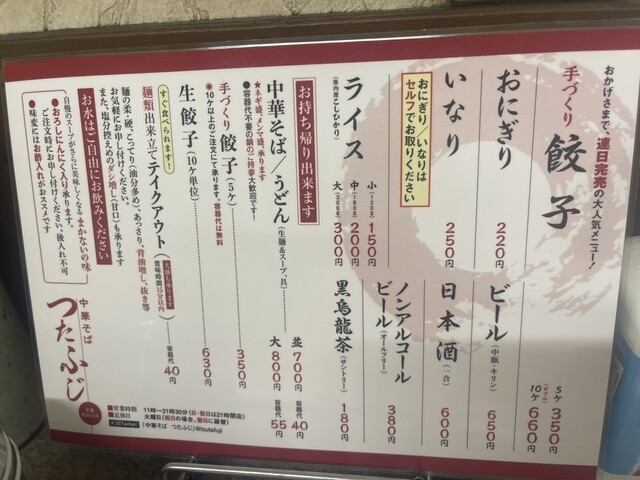 おかげさまで、連日完売の大人気メニュー！
手づくり 餃子
5ケ 350円
10ケ 660円
おにぎり 220円
ビール（中瓶・キリン） 650円
いなり 250円
日本酒（一合） 600円
おにぎり／いなりは
セルフでお取りください
ノンアルコール
ビール（オールフリー） 380円
ライス
（県内産こしひかり）
小（120g） 150円
中（180g） 200円
大（300g） 300円
黒烏龍茶（サントリー） 180円
お持ち帰り出来ます
中華そば／うどん（生麺&スープ・具）
並 700円 容器代 40円
大 800円 容器代 55円
★ネギ盛、メンマ盛、承ります
●容器代不要の鍋のご持参大歓迎です！
手づくり 餃子（5ケ） 350円
●10ケ以上のご注文にて承ります。容器代は無料
生餃子（10ケ単位） 630円
すぐ食べられます！
麺類出来立てテイクアウト
（賞味時間15分以内）
容器代 40円
麺の柔・硬、こってり（油分多め）、あっさり、背油増し、抜き等
お気軽にお申し付けください。
また、塩分控えめのダシ増し（甘口）も承ります
お水はご自由にお飲みください
自慢のスープがさらに美味しくなる まかないの味
●おろしにんにく入り承ります。
ご注文時にお申し付けください。後入れ不可
●味変にはお酢入れがおススメです
中華そば
つたふじ
■営業時間 11時〜21時30分（日・祝日は21時閉店）
■定休日 火曜日（祝日の場合、翌日に振替）
「中華そば つたふじ」@tsutafuji